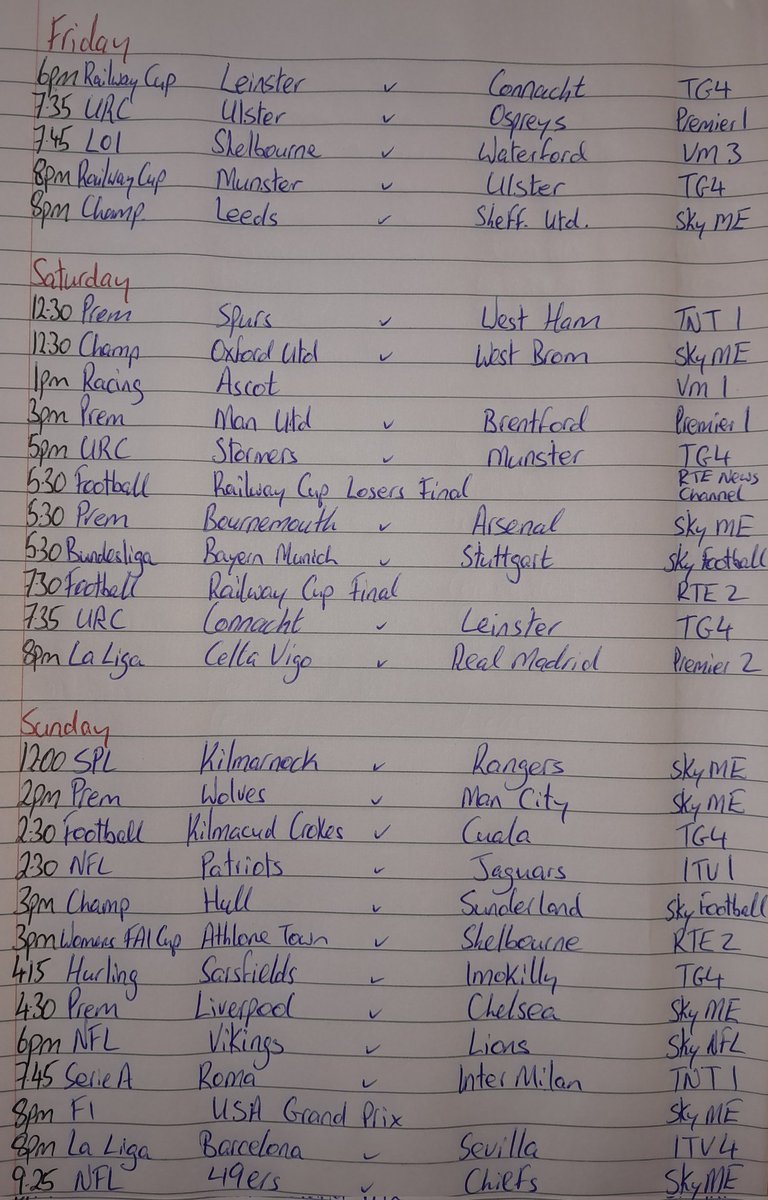 Friday
6pm Railway Cup Leinster v Connacht TG4
7.35 URC Ulster v Ospreys Premier 1
7.45 LOI Shelbourne v Waterford VM 3
8pm Railway Cup Munster v Ulster TG4
8pm Champ Leeds v Sheff. Utd. Sky ME
Saturday
12.30 Prem Spurs v West Ham TNT 1
12.30 Champ Oxford Utd v West Brom Sky ME
1pm Racing Ascot VM 1
3pm Prem Man Utd v Brentford Premier 1
5pm URC Stormers v Munster TG4
5.30 Football Railway Cup Losers Final RTE News Channel
5.30 Prem Bournemouth v Arsenal Sky ME
5.30 Bundesliga Bayern Munich v Stuttgart Sky Football
7.30 Football Railway Cup Final RTE 2
7.35 URC Connacht v Leinster TG4
8pm La Liga Celta Vigo v Real Madrid Premier 2
Sunday
12.00 SPL Kilmarnock v Rangers Sky ME
2pm Prem Wolves v Man City Sky ME
2.30 Football Kilmacud Crokes v Cuala TG4
2.30 NFL Patriots v Jaguars ITV 1
3pm Champ Hull v Sunderland Sky Football
3pm Womens FAI Cup Athlone Town v Shelbourne RTE 2
4.15 Hurling Sarsfields v Imokilly TG4
4.30 Prem Liverpool v Chelsea Sky ME
6pm NFL Vikings v Lions Sky NFL
7.45 Serie A Roma v Inter Milan TNT 1
8pm F1 USA Grand Prix Sky ME
8pm La Liga Barcelona v Sevilla ITV 4
9.25 NFL 49ers v Chiefs Sky ME